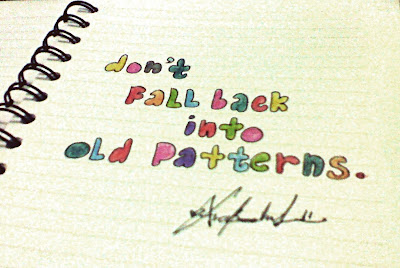 don't
Fall back
into
old Patterns.